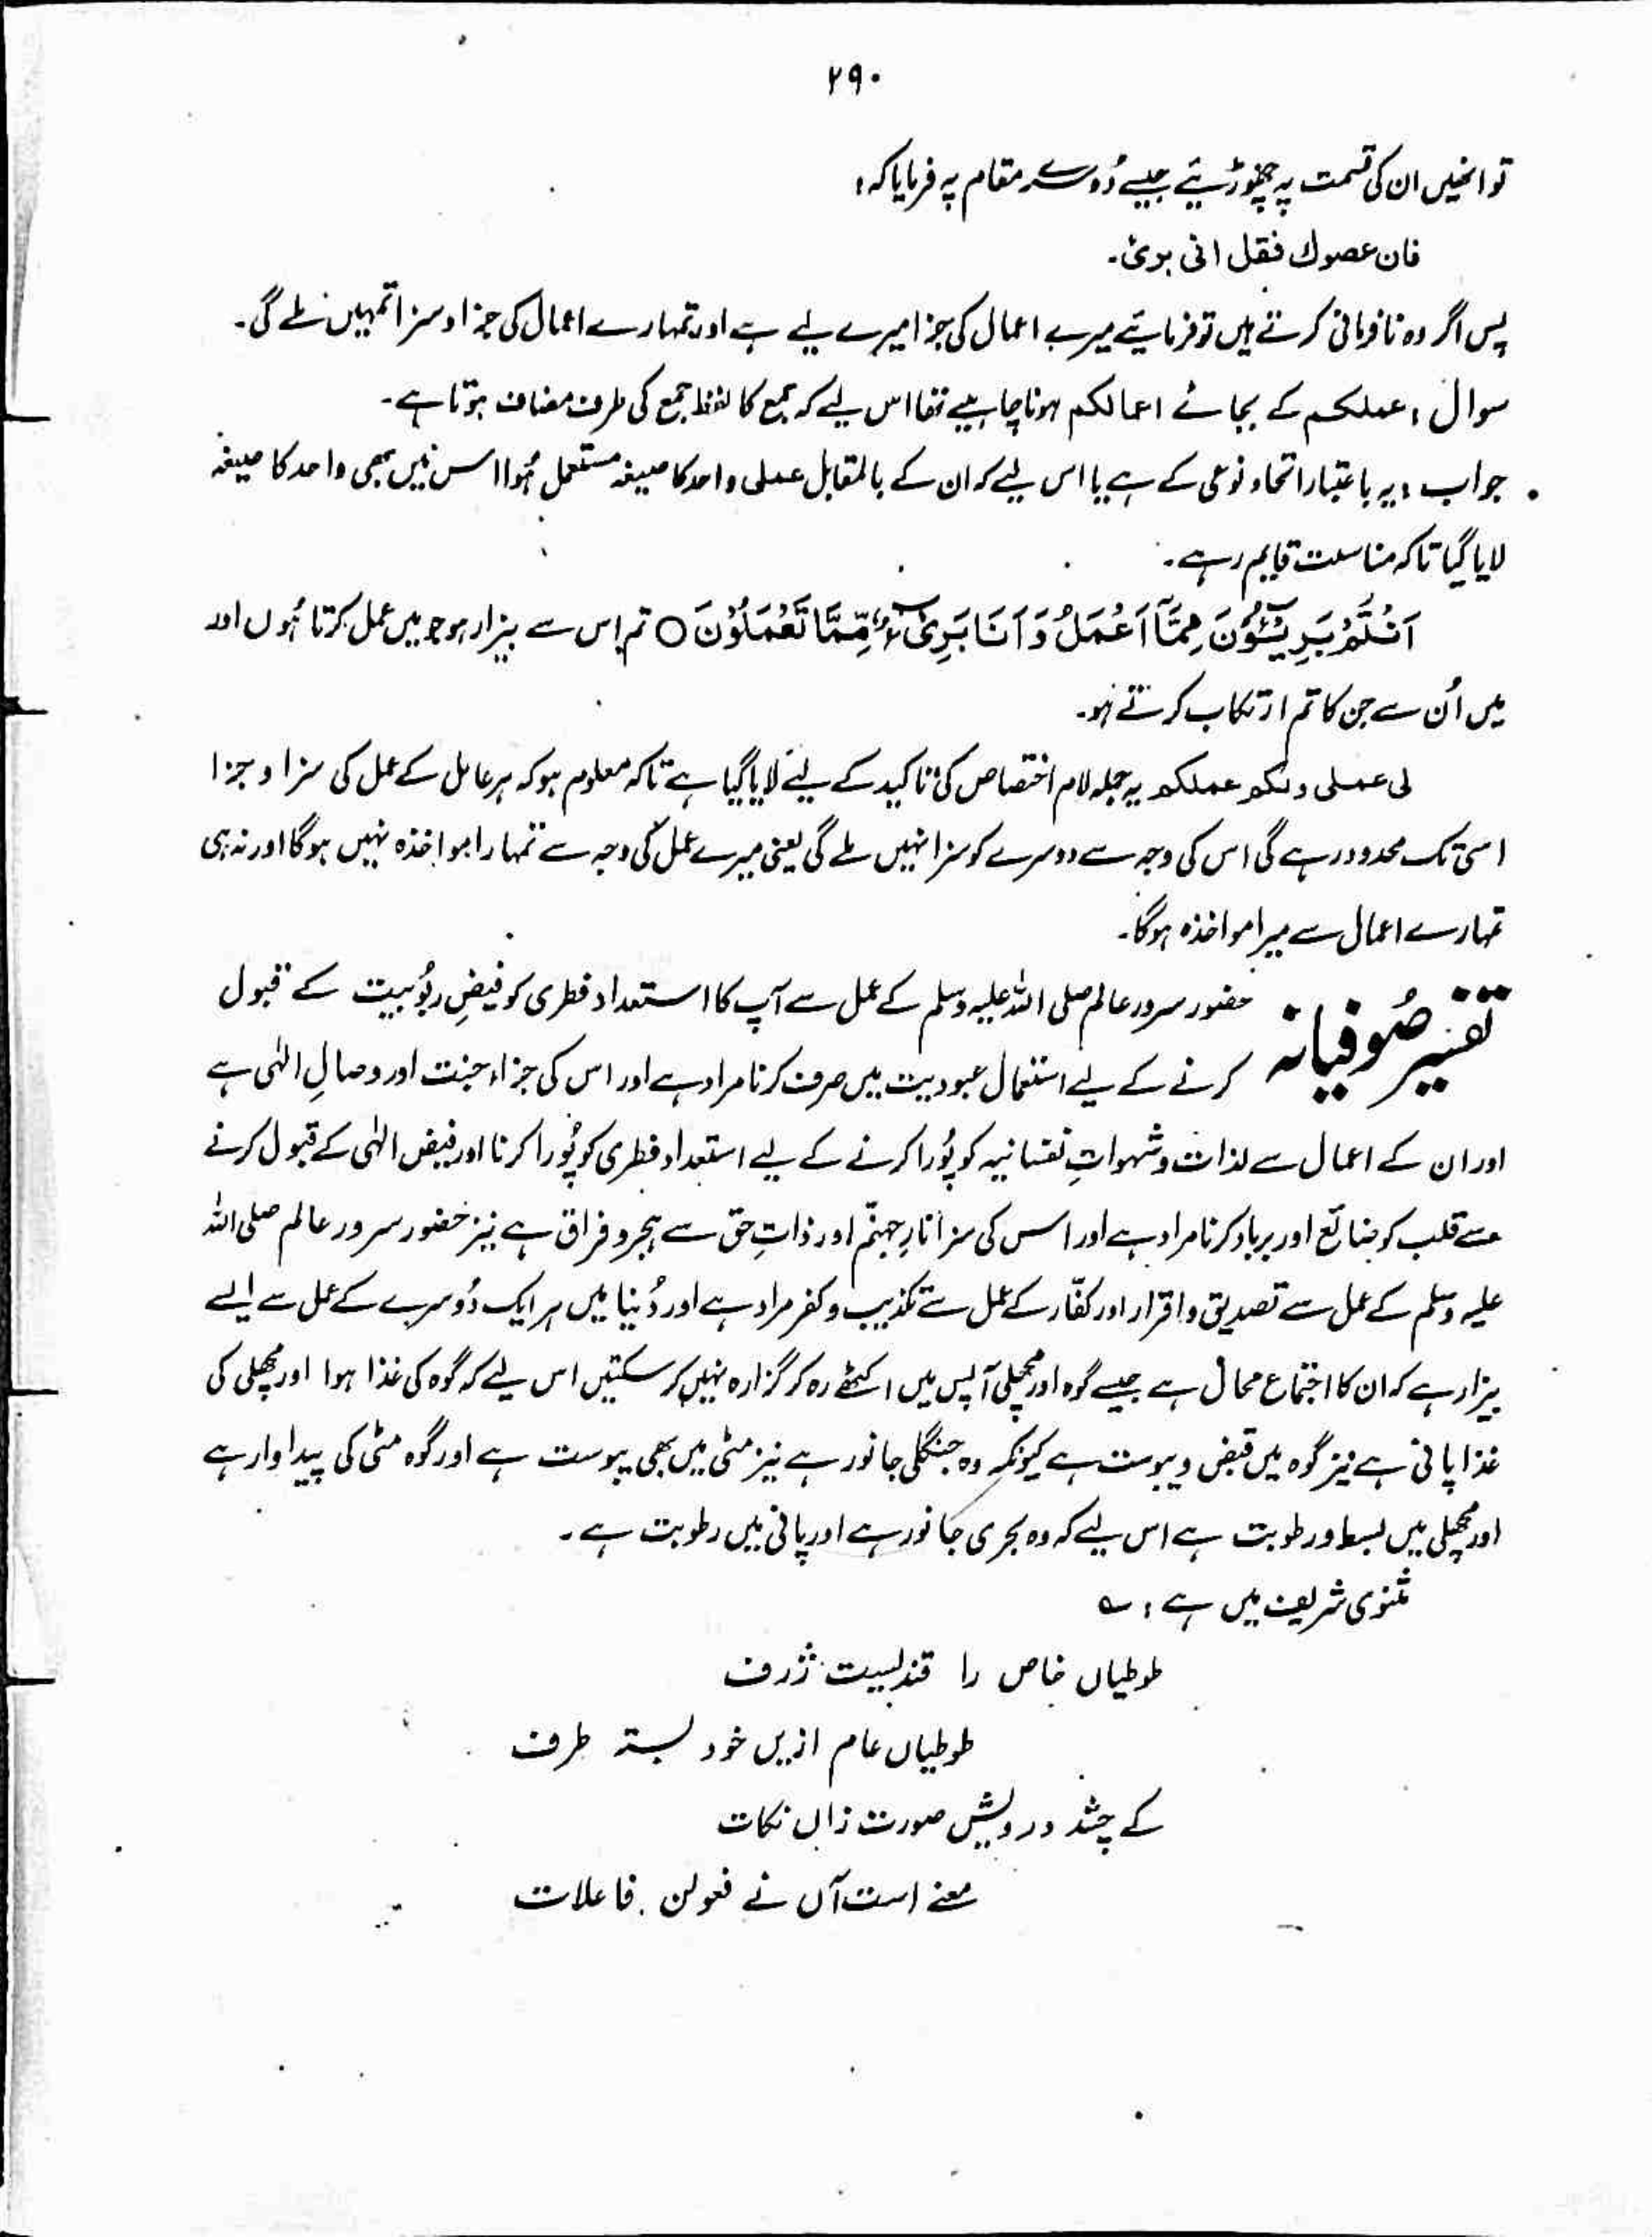 ۲۹۰
تو انھیں ان کی قسمت پہ چھوڑیئے جیسے دُوسرے مقام پہ فرمایا کہ:
فان عصوك فقل انی بریٔ۔
پس اگر وہ نافرمانی کرتے ہیں تو فرمائیے میرے اعمال کی جزا میرے لیے ہے اور تمہارے اعمال کی جزا و سزا تمہیں ملے گی۔
سوال: عملکم کے بجائے اعمالکم ہونا چاہیے تھا اس لیے کہ جمع کا لفظ جمع کی طرف مضاف ہوتا ہے۔
جواب: یہ باعتبار اتحاد نوعی کے ہے یا اس لیے کہ ان کے بالمقابل عملی واحد کا صیغہ مستعمل ہُوا اس میں بھی واحد کا صیغہ
لایا گیا تاکہ مناسبت قایم رہے۔
اَنْتُمْ بَرِيْٓـئُوْنَ مِمَّآ اَعْمَلُ وَ اَنَا بَرِیْٓءٌ مِّمَّا تَعْمَلُوْنَ ○ تم اس سے بیزار ہو جو میں عمل کرتا ہُوں اور
میں اُن سے جن کا تم ارتکاب کرتے ہو۔
لی عملی ولکم عملکم یہ جملہ لام اختصاص کی تاکید کے لیے لایا گیا ہے تاکہ معلوم ہو کہ ہر عامل کے عمل کی سزا و جزا
اسی تک محدود رہے گی اس کی وجہ سے دوسرے کو سزا نہیں ملے گی یعنی میرے عمل کی وجہ سے تمہارا مواخذہ نہیں ہوگا اور نہ ہی
تمہارے اعمال سے میرا مواخذہ ہوگا۔
تفسیر صُوفیانہ حضور سرور عالم صلی اللہ علیہ وسلم کے عمل سے آپ کا استعداد فطری کو فیضِ ربُوبیت کے قبول
کرنے کے لیے استعمال عبودیت میں صرف کرنا مراد ہے اور اس کی جزاء جنت اور وصالِ الٰہی ہے
اور ان کے اعمال سے لذات و شہواتِ نفسانیہ کو پُورا کرنے کے لیے استعداد فطری کو پُورا کرنا اور فیض الٰہی کے قبول کرنے
سے قلب کو ضائع اور برباد کرنا مراد ہے اور اس کی سزا نارِ جہنّم اور ذاتِ حق سے ہجر و فراق ہے نیز حضور سرور عالم صلی اللہ
علیہ وسلم کے عمل سے تصدیق و اقرار اور کفّار کے عمل سے تکذیب و کفر مراد ہے اور دُنیا میں ہر ایک دُوسرے کے عمل سے ایسے
بیزار ہے کہ ان کا اجتماع محال ہے جیسے گوہ اور مچھلی آپس میں اکٹھے رہ کر گزارہ نہیں کر سکتیں اس لیے کہ گوہ کی غذا ہوا اور مچھلی کی
غذا پانی ہے نیز گوہ میں قبض ویبوست ہے کیونکہ وہ جنگلی جانور ہے نیز مٹی میں بھی یبوست ہے اور گوہ مٹی کی پیداوار ہے
اور مچھلی میں بسط ورطوبت ہے اس لیے کہ وہ بحری جانور ہے اور پانی میں رطوبت ہے۔
مثنوی شریف میں ہے: ؎
طوطیاں خاص را قندیست ژرف
طوطیاں عام ازیں خود بستہ طرف
کے چشد درویش صورت زاں نکات
معنے است آں نے فعولن فاعلات